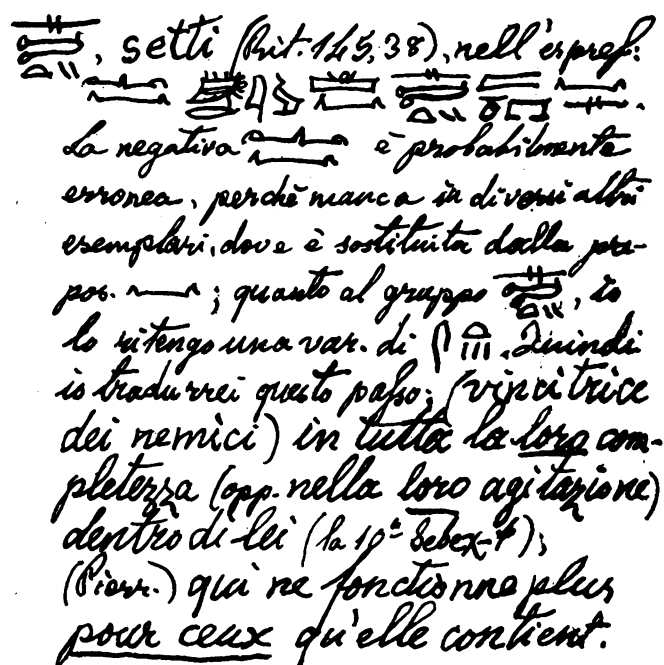 setti (Rit. 145, 38), nell'espress:
La negativa è probabilmente
erronea, perchè manca in diversi altri
esemplari, dove è sostituita dalla pre-
pos. ; quanto al gruppo , io
lo ritengo una var. di . Quindi
io tradurrei questo passo; (vincitrice
dei nemici) in tutta la loro com-
pletezza (opp. nella loro agitazione)
dentro di lei (la 10ª
(Pierr.) qui ne fonctionne plus
pour ceux qu'elle contient.